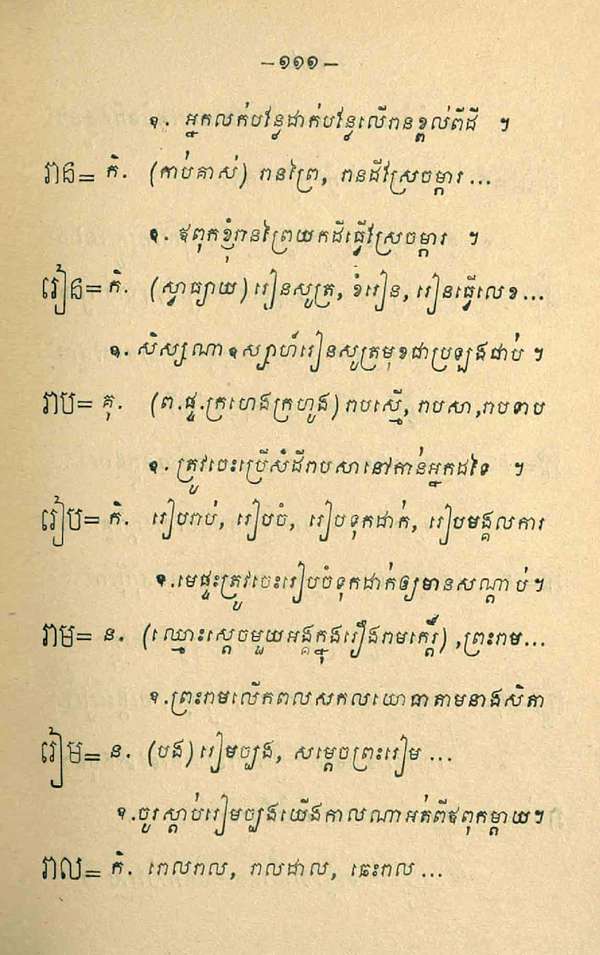 –១១១–
ឧ. អ្នកលក់បន្លែដាក់បន្លែលើរានខ្ពស់ពីដី ។
រាន= កិ. (កាប់គាស់) រានព្រៃ, រានដីស្រែចម្ការ...
ឧ. ឪពុកខ្ញុំរានព្រៃយកដីធ្វើស្រែចម្ការ ។
រៀន= កិ. (ស្វាធ្យាយ) រៀនសូត្រ, ខំរៀន, រៀនធ្វើលេខ...
ឧ. សិស្សណាឧស្សាហ៍រៀនសូត្រមុខជាប្រឡងជាប់ ។
រាប= គុ. (ព.ផ្ទុ.ក្រហេងក្រហូង) រាបស្មើ, រាបសា, រាបទាប
ឧ. ត្រូវចេះប្រើសំដីរាបសានៅកាន់អ្នកដទៃ ។
រៀប= កិ. រៀបរាប់, រៀបចំ, រៀបទុកដាក់, រៀបមង្គលការ
ឧ. មេផ្ទះត្រូវចេះរៀបចំទុកដាក់ឲ្យមានសណ្ដាប់ ។
រាម= ន. (ឈ្មោះស្ដេចមួយអង្គក្នុងរឿងរាមកេរ្តិ៍), ព្រះរាម...
ឧ. ព្រះរាមលើកពលសកលយោធាតាមនាងសិតា
រៀម= ន. (បង) រៀមច្បង, សម្ដេចព្រះរៀម ...
ឧ. ចូរស្ដាប់រៀមច្បងយើងកាលណាអត់ពីឪពុកម្ដាយ ។
រាល= កិ. រោលរាល, រាលដាល, ឆេះរាល ...